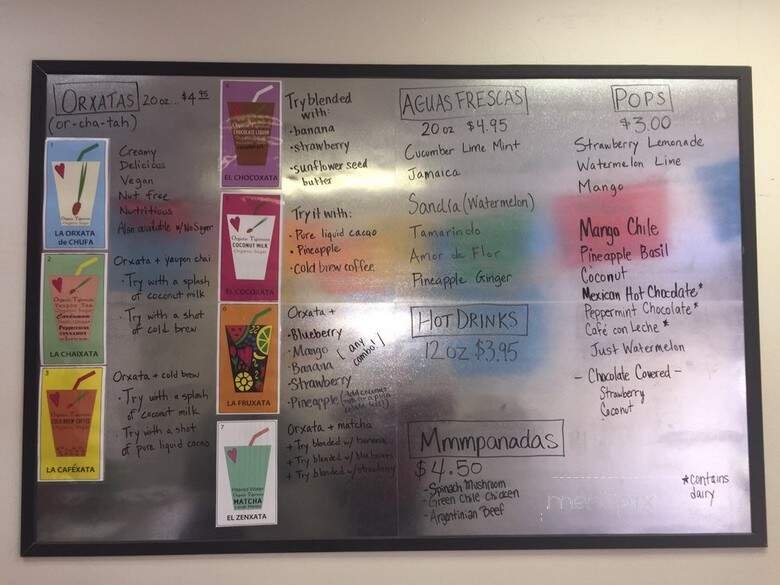 ORXATAS 20oz... $4.95
(or-cha-tah)
1
Organic Tigernuts
LA ORXATA
de CHUFA
Creamy
Delicious
Vegan
Nut free
Nutritious
Also available w/No Sugar
2
Organic Tigernuts
Yaupon Tea
Cardamom
Peppercorns
LA CHAIXATA
Orxata + yaupon chai
- Try with a splash
of coconut milk
- Try with a shot
of cold brew
3
Organic Tigernuts
COLD BREW COFFEE
LA CAFÉXATA
Orxata + cold brew
- Try with a splash
of coconut milk
- Try with a shot
of pure liquid cacao
Organic Tigernuts
CHOCOLATE LIQUOR
EL CHOCOXATA
Try blended
with:
• banana
• strawberry
• sunflower seed
butter
Organic Tigernuts
COCONUT MILK
Organic Sugar
EL COCOLATA
Try it with:
• Pure liquid cacao
• Pineapple
• Cold brew coffee
6
LA FRUXATA
Orxata +
• Blueberry
• Mango
• Banana
• Strawberry
(any
combo!)
• Pineapple (add coconut
milk for a piña
colada feel!)
7
Filtered Water
Organic Tigernuts
MATCHA
EL ZENXATA
Orxata + matcha
+ Try blended w/ banana
+ Try blended w/ blueberries
+ Try blended w/ strawberry
AGUAS FRESCAS
20 oz $4.95
Cucumber Lime Mint
Jamaica
Sandia (Watermelon)
Tamarindo
Amor de Flor
Pineapple Ginger
HOT DRINKS
12 oz $3.95
Mmmpanadas
$4.50
- Spinach Mushroom
- Green Chile Chicken
- Argentinian Beef
POPS
$3.00
Strawberry Lemonade
Watermelon Lime
Mango
Mango Chile
Pineapple Basil
Coconut
Mexican Hot Chocolate*
Peppermint Chocolate*
Café con Leche*
Just Watermelon
- Chocolate Covered -
Strawberry
Coconut
*contains
dairy